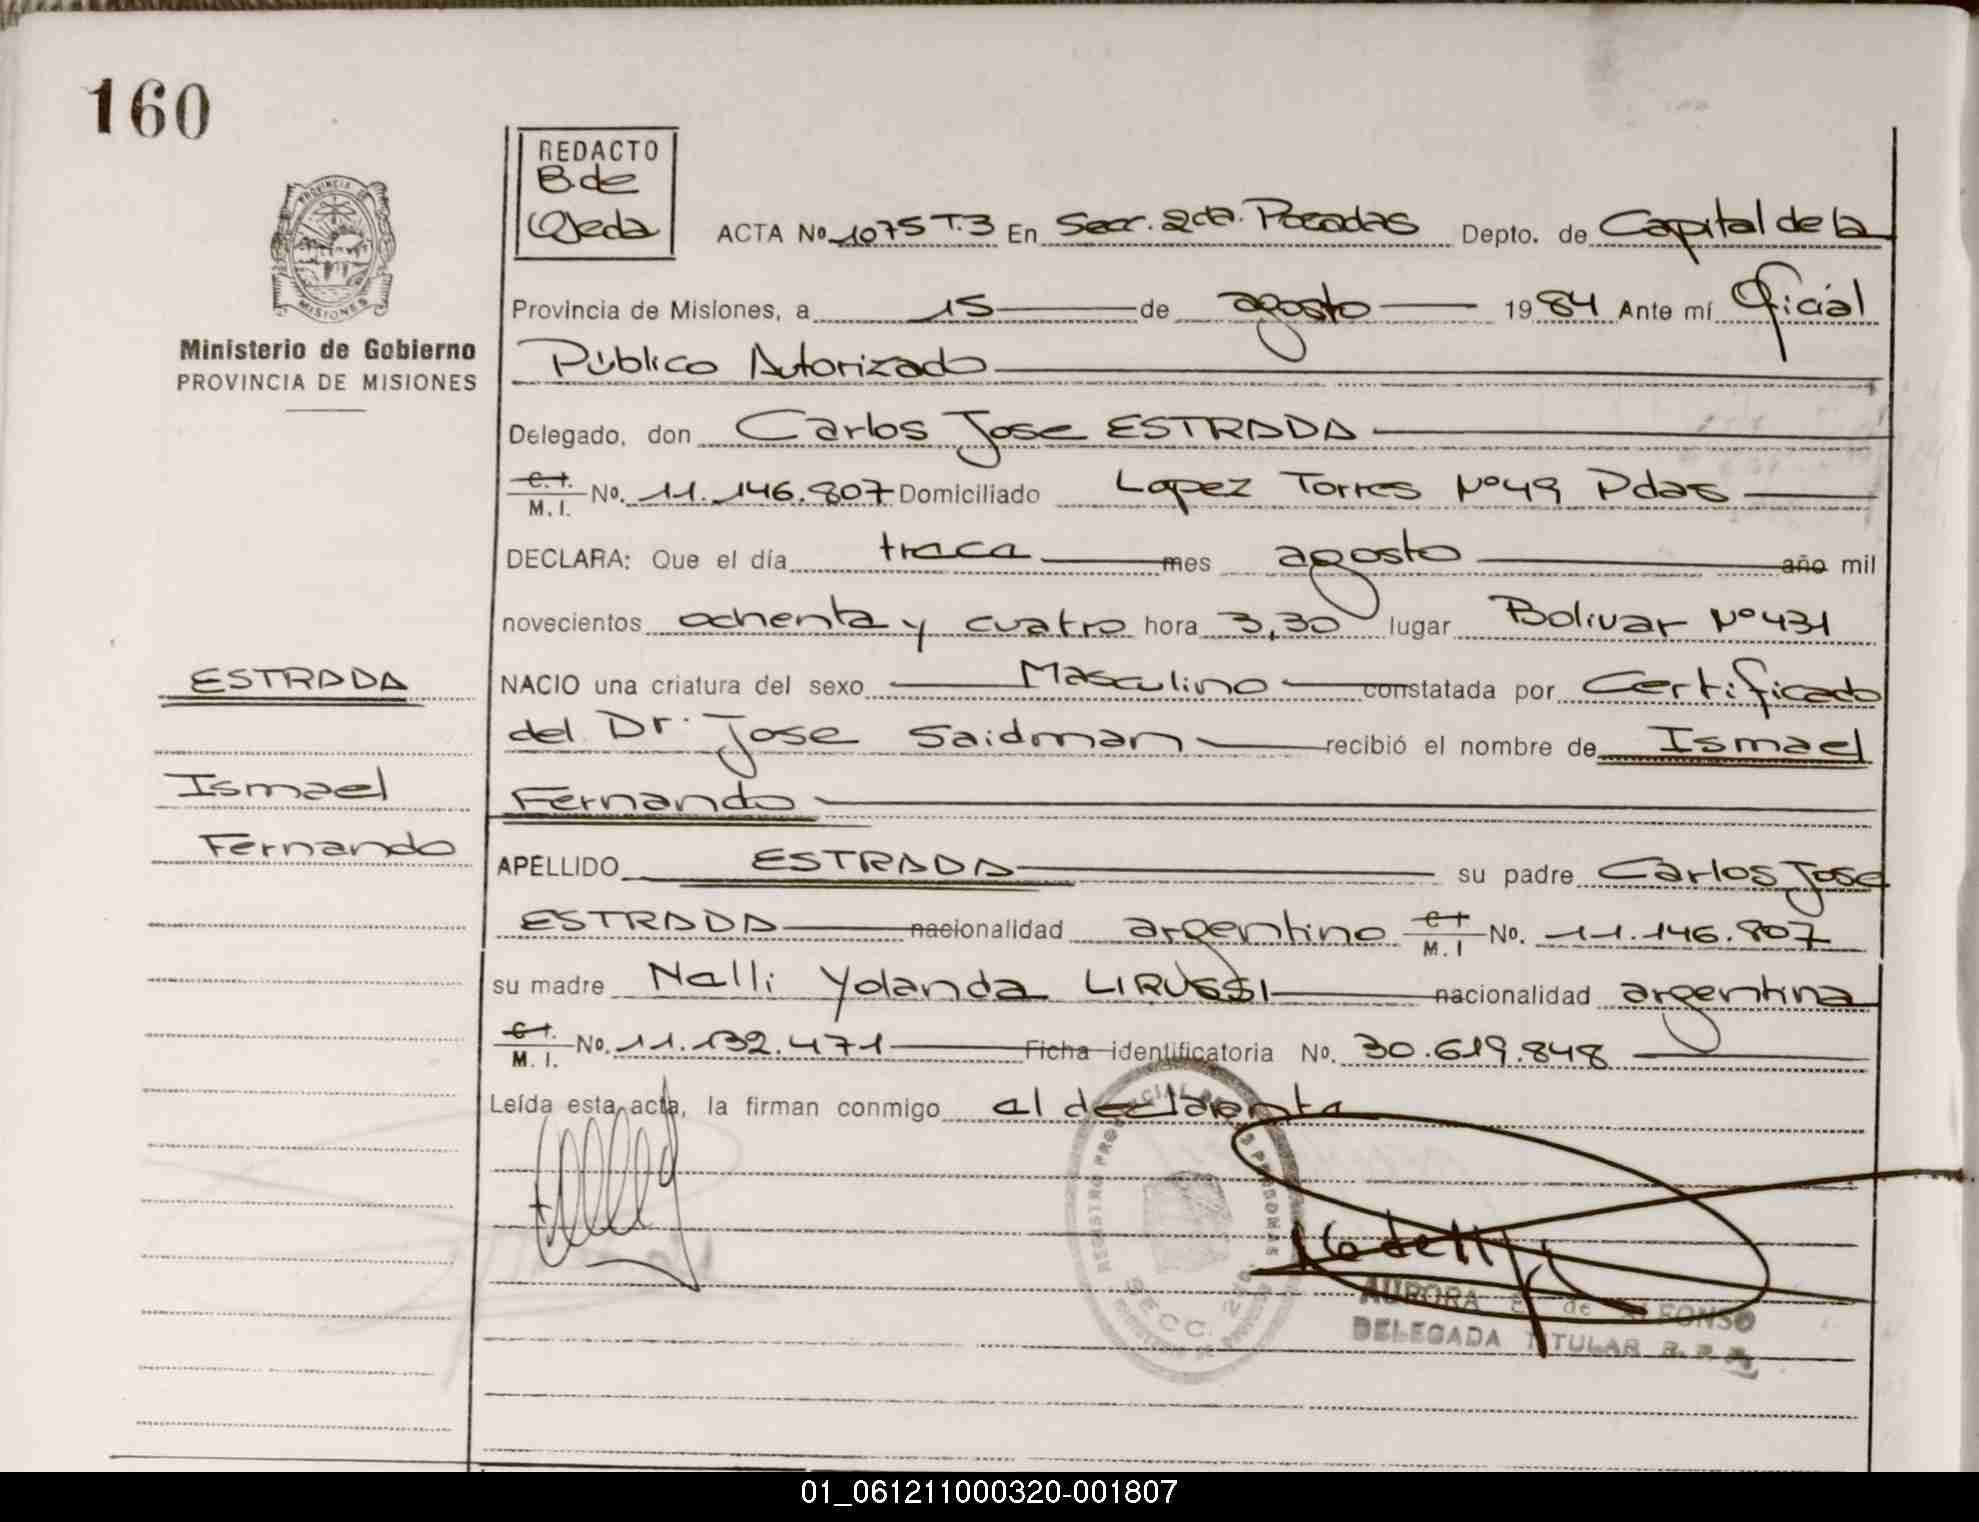 160
REDACTO
B. de
Ojeda
ACTA Nº 1075 T.3 En Secc. 2da. Posadas Depto. de Capital de la
Provincia de Misiones, a 15 de agosto 1984 Ante mí Oficial
Público Autorizado
Delegado, don Carlos Jose ESTRADA
C.I.
M.I. No. 11.146.807 Domiciliado Lopez Torres Nº 49 Pdas
DECLARA: Que el día trece mes agosto año mil
novecientos ochenta y cuatro hora 3,30 lugar Bolivar Nº 431
NACIO una criatura del sexo Masculino constatada por Certificado
del Dr. Jose Saidman recibió el nombre de Ismael
Fernando
APELLIDO ESTRADA su padre Carlos Jose
ESTRADA nacionalidad argentino C.I
M.I No. 11.146.807
su madre Nelli Yolanda LIRUSSI nacionalidad argentina
C.I.
M.I. No. 11.132.471 Ficha identificatoria No. 30.619.848
Leída esta acta, la firman conmigo el declarante
PROVINCIA DE
MISIONES
Ministerio de Gobierno
PROVINCIA DE MISIONES
ESTRADA
Ismael
Fernando
REGISTRO PROVINCIAL DE LAS PERSONAS
SECC. 2da.
AURORA E. de ALFONSO
DELEGADA TITULAR R. P. P.
01_061211000320-001807